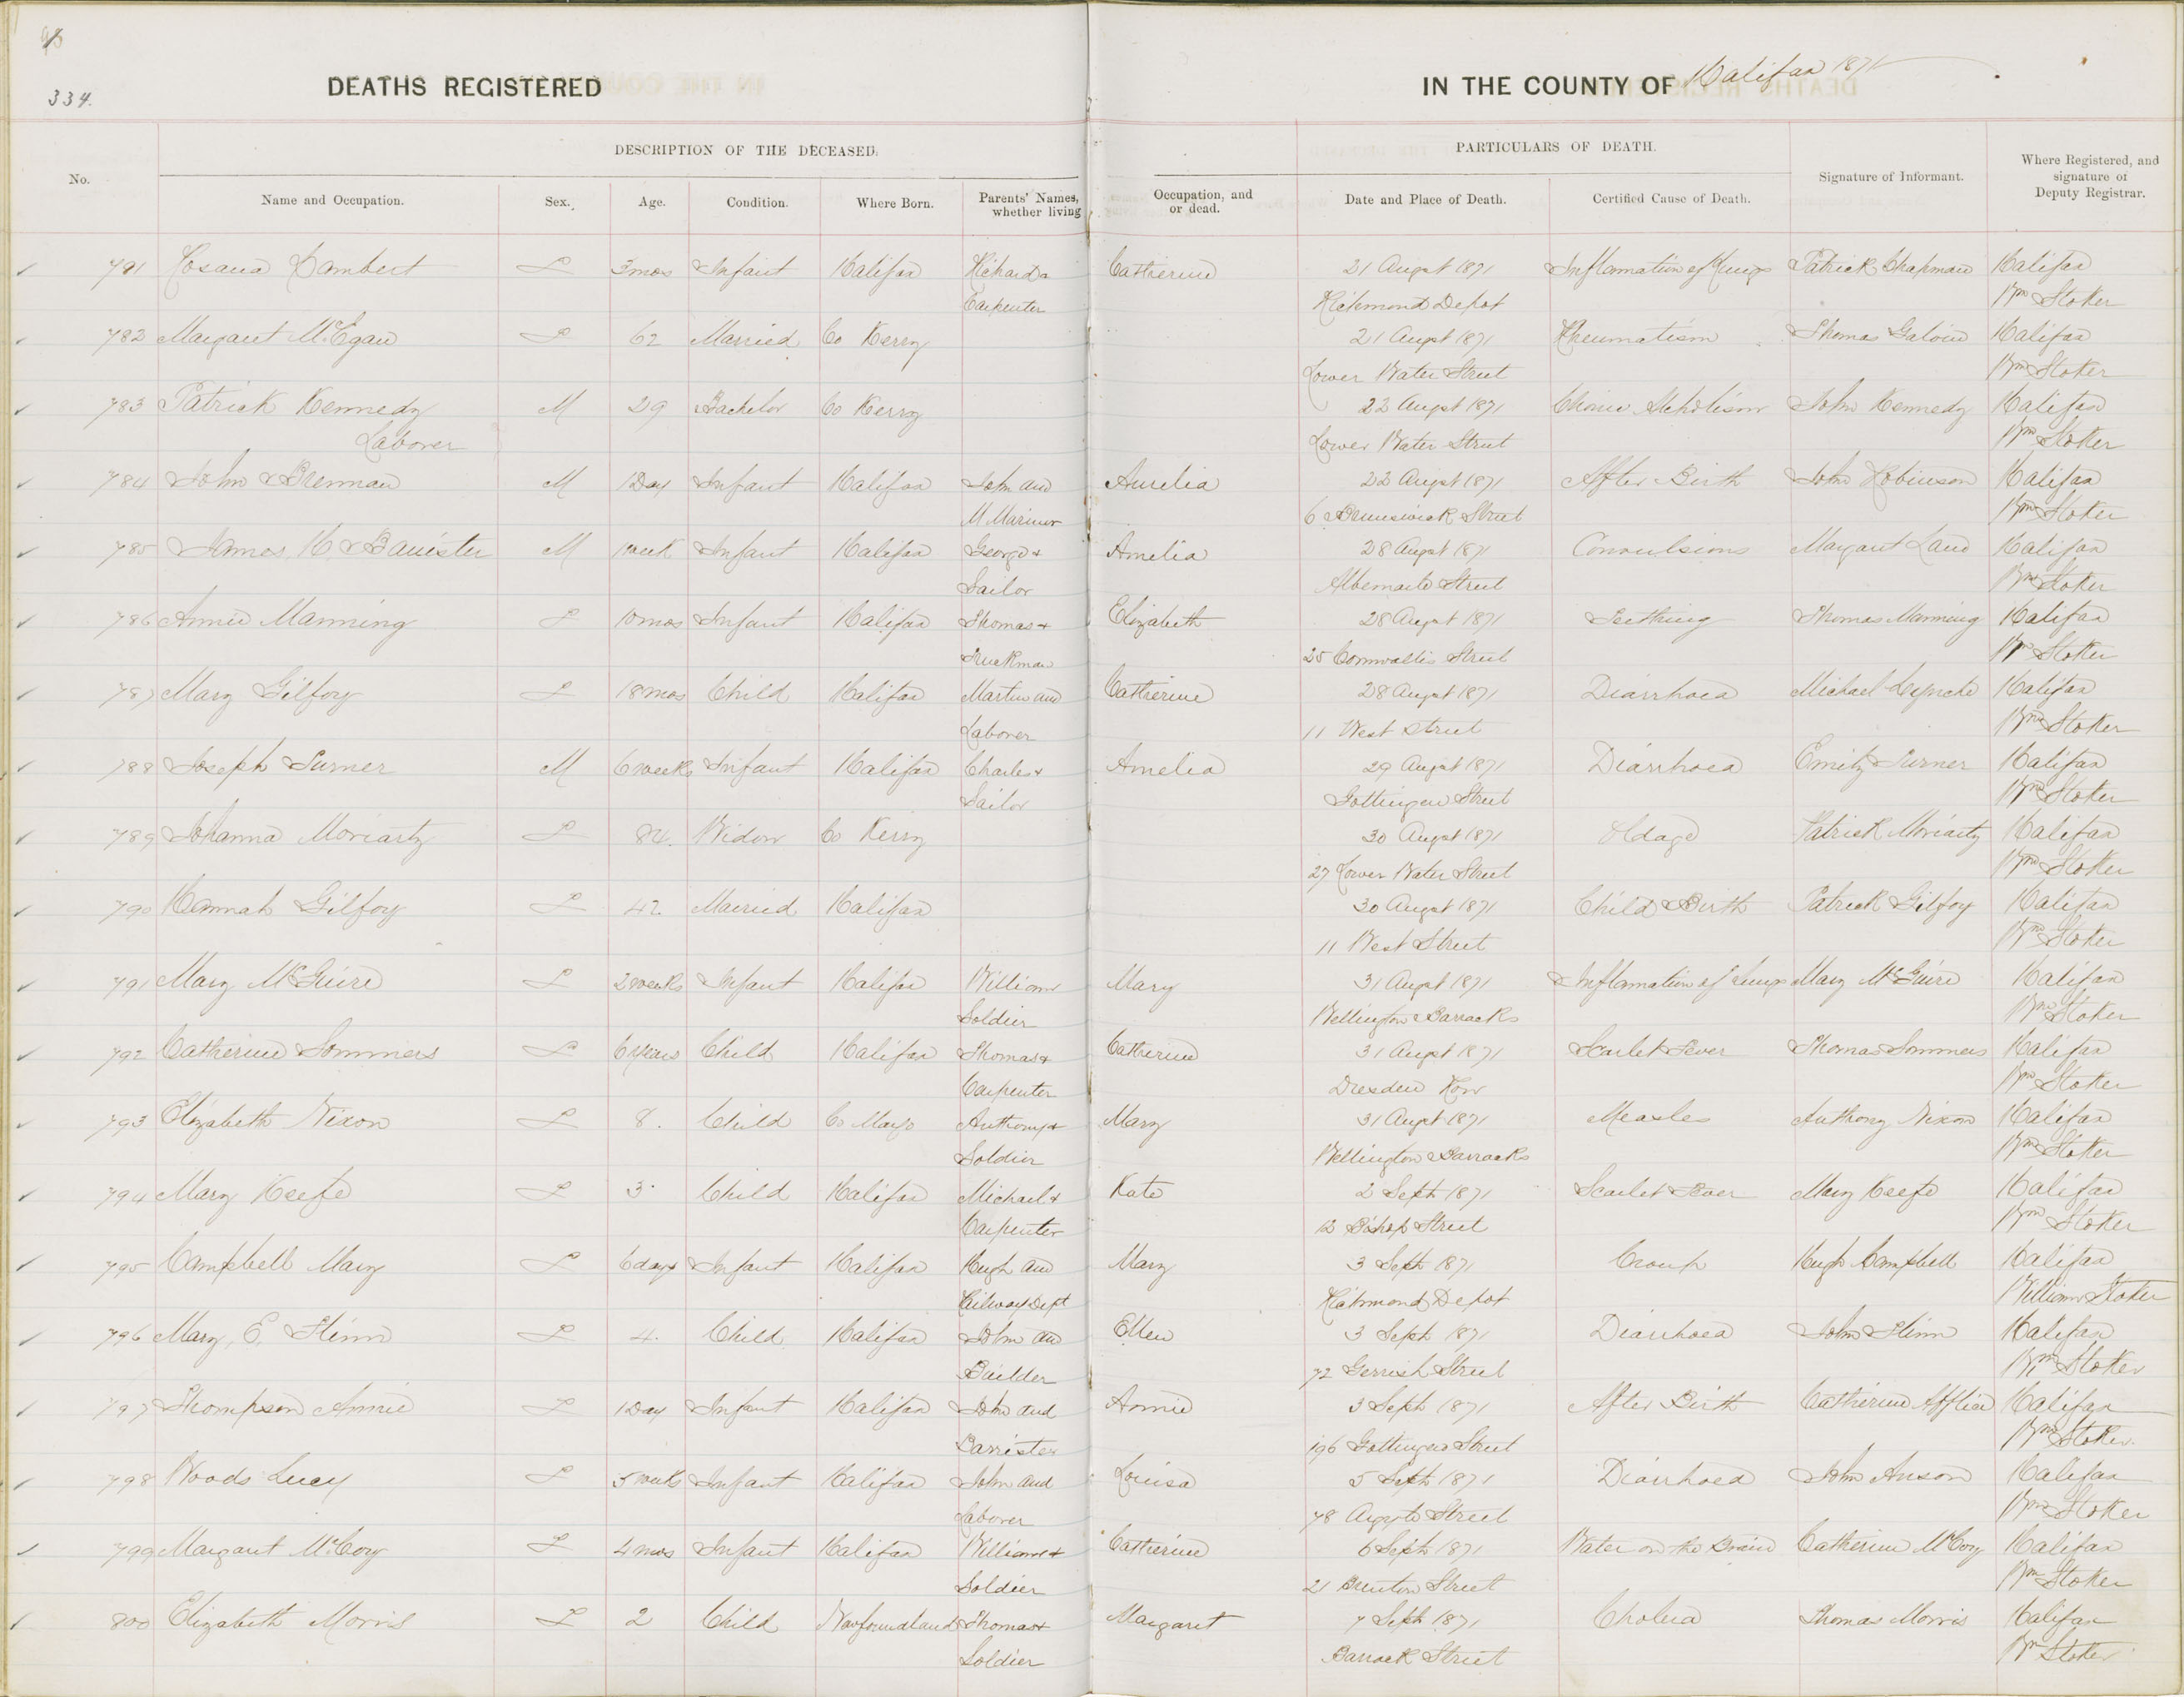 334.
DEATHS REGISTERED IN THE COUNTY OF Halifax 1871
DESCRIPTION OF THE DECEASED. PARTICULARS OF DEATH.
No. Name and Occupation. Sex. Age. Condition. Where Born. Parents' Names, whether living Occupation, and or dead. Date and Place of Death. Certified Cause of Death. Signature of Informant. Where Registered, and signature of Deputy Registrar.
791 Rosana Lambert F 3 mos Infant Halifax Richard & Catherine 21 August 1871 Inflamation of Lungs Patrick Chapman Halifax
Carpenter Richmond Depot Wm Stoker
782 Margaret McEgan F 62 Married Co Kerry 21 August 1871 Rheumatism Thomas Galvin Halifax
Lower Water Street Wm Stoker
783 Patrick Kennedy M 29 Bachelor Co Kerry 22 August 1871 John Kennedy Halifax
Laborer Lower Water Street Wm Stoker
784 John Brennan M 1 Day Infant Halifax John and Aurelia 22 August 1871 After Birth John Robinson Halifax
M Mariner 6 Brunswick Street Wm Stoker
785 James H Banister M 1 week Infant Halifax George & Amelia 28 August 1871 Convulsions Margaret Land Halifax
Sailor Albemarle Street Wm Stoker
786 Annie Manning F 10 mos Infant Halifax Thomas & Elizabeth 28 August 1871 Teething Thomas Manning Halifax
Truckman 25 Cornwallis Street Wm Stoker
787 Mary Gilfoy F 18 mos Child Halifax Martin and Catherine 28 August 1871 Diarrhoea Michael Halifax
Laborer 11 West Street Wm Stoker
788 Joseph Turner M 6 weeks Infant Halifax Charles & Amelia 29 August 1871 Diarrhoea Emily Turner Halifax
Sailor Gottingen Street Wm Stoker
789 Johanna Moriarty F 84. Widow Co Kerry 30 August 1871 Old age Patrick Moriarty Halifax
27 Lower Water Street Wm Stoker
790 Hannah Gilfoy F 42 Married Halifax 30 August 1871 Child Birth Patrick Gilfoy Halifax
11 West Street Wm Stoker
791 Mary McGuire F 2 weeks Infant Halifax William Mary 31 August 1871 Inflamation of Lungs Mary McGuire Halifax
Soldier Wellington Barracks Wm Stoker
792 Catherine Sommers F 6 years Child Halifax Thomas & Catherine 31 August 1871 Scarlet Fever Thomas Sommers Halifax
Carpenter Dresden Row Wm Stoker
793 Elizabeth Nixon F 8. Child Co Mayo Anthony & Mary 31 August 1871 Measles Anthony Nixon Halifax
Soldier Wellington Barracks Wm Stoker
794 Mary Keefe F 3 Child Halifax Michael & Kate 2 Septr 1871 Scarlet Fever Mary Keefe Halifax
Carpenter 12 Bishop Street Wm Stoker
795 Campbell Mary F 6 days Infant Halifax Hugh and Mary 3 Septr 1871 Croup Hugh Campbell Halifax
Railway Dept Richmond Depot William Stoker
796 Mary, E. Flinn F 4. Child Halifax John and Ellen 3 Septr 1871 Diarrhoea John Flinn Halifax
Builder 72 Gerrish Street Wm Stoker
797 Thompson Annie F 1 Day Infant Halifax John and Annie 3 Septr 1871 After Birth Catherine Halifax
Barrister 196 Gottingen Street Wm Stoker.
798 Woods Lucy F 5 weeks Infant Halifax John and Louisa 5 Septr 1871 Diarrhoea John Anson Halifax
Laborer 78 Street Wm Stoker
799 Margaret McCoy F 4 mos Infant Halifax William & Catherine 6 Septr 1871 Water on the Brain Catherine McCoy Halifax
Soldier 21 Brenton Street Wm Stoker
800 Elizabeth Morris F 2 Child Newfoundland Thomas & Margaret 7 Septr 1871 Cholera Thomas Morris Halifax
Soldier Barrack Street Wm Stoker